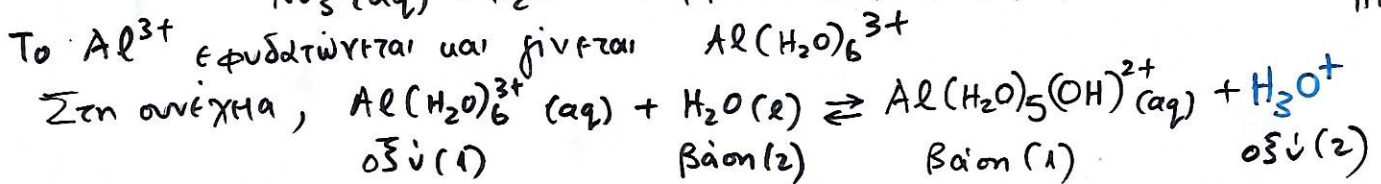 NO₃⁻(aq)
Το Al³⁺ εφυδατώνεται και γίνεται Al(H₂O)₆³⁺
Στη συνέχεια, Al(H₂O)₆³⁺ (aq) + H₂O(l) ⇄ Al(H₂O)₅(OH)²⁺(aq) + H₃O⁺
οξύ(1) βάση(2) βάση(1) οξύ(2)